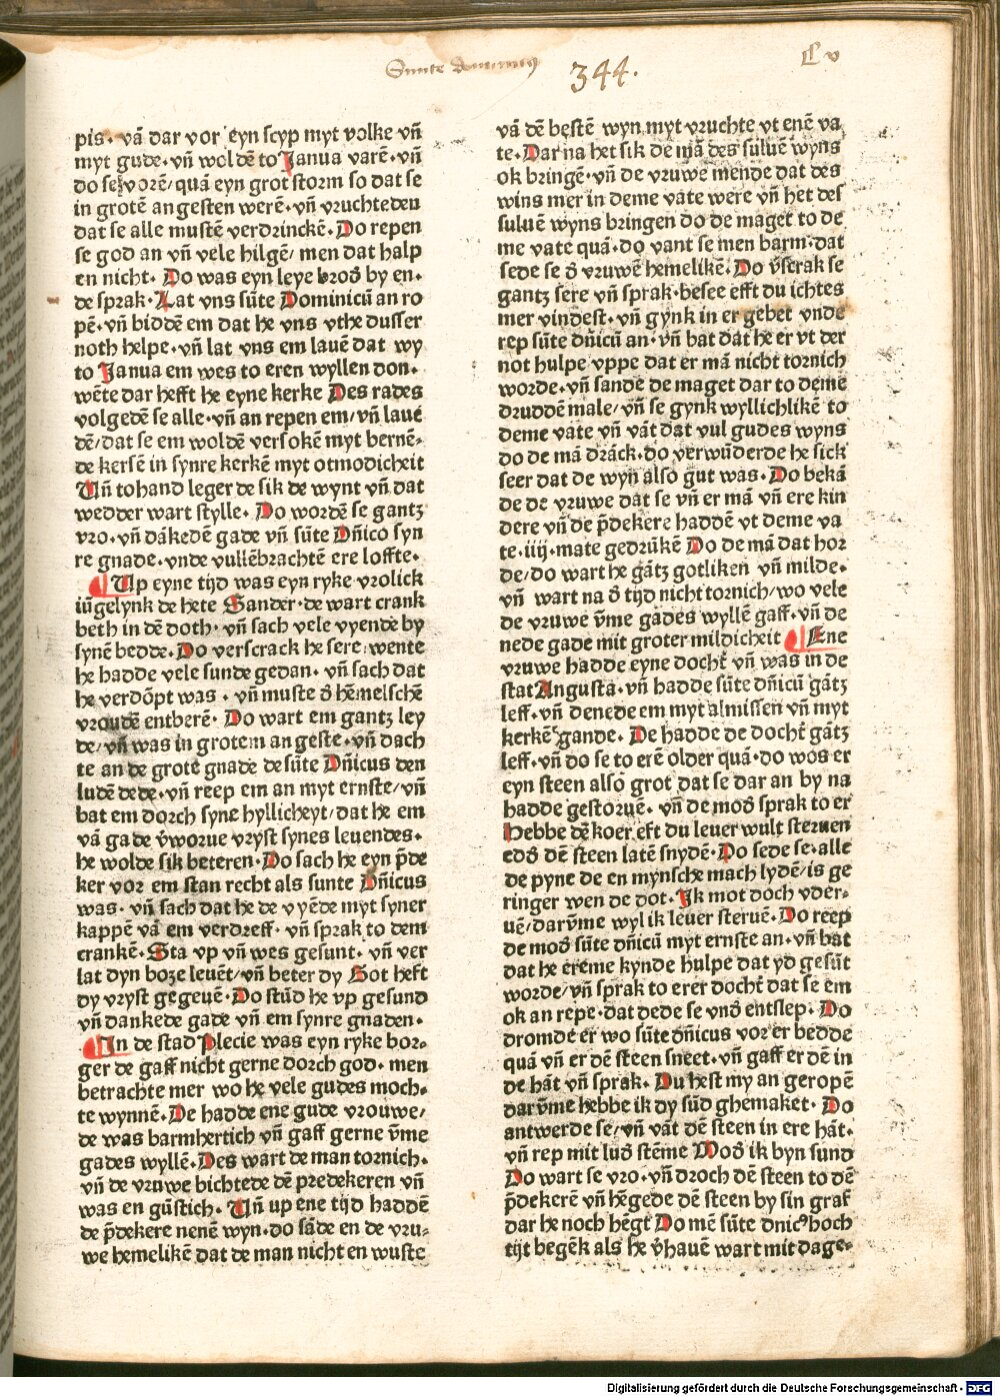 Sunte Dominicus
344.
C v
pis. vā dar vor eyn scyp myt volke vñ
myt gude. vñ woldē to Janua varē. vñ
do se vorē/ quā eyn grot storm so dat se
in grotē angesten werē. vñ vruchteden
dat se alle mustē verdrinckē. Do repen
se god an vñ vele hilgē/ men dat halp
en nicht. Do was eyn leye broď by en.
de sprak. Lat vns sūte Dominicū an ro
pē. vñ biddē em dat he vns vthe dusser
noth helpe. vñ lat vns em lauē dat wy
to Janua em wes to eren wyllen don.
wēte dar hefft he eyne kerke Des rades
volgedē se alle. vñ an repen em/ vñ laue
dē/ dat se em woldē versokē myt bernē-
de kersē in synre kerkē myt otmodicheit
Uñ tohand leger de sik de wynt vñ dat
wedder wart stylle. Do wordē se gantz
vro. vñ dākedē gade vñ sūte Dñico syn
re gnade. vnde vullēbrachtē ere loffte.
Up eyne tijd was eyn ryke vrolick
iūgelynk de hete Sander. de wart crank
beth in dē doth. vñ sach vele vyende by
synē bedde. Do verscrack he sere/ wente
he hadde vele sunde gedan. vñ sach dat
he verdōpt was. vñ muste ď hēmelschē
vroudē entberē. Do wart em gantz ley
de/ vñ was in grotem angeste. vñ dach
te an de grotē gnade de sūte Dñicus den
ludē dede. vñ reep em an myt ernste/ vñ
bat em dorch syne hyllicheyt/ dat he em
vā gade v̄worue vryst synes leuendes.
he wolde sik beteren. Do sach he eyn p̄de
ker vor em stan recht als sunte Dñicus
was. vñ sach dat he de vyēde myt syner
kappē vā em verdreff. vñ sprak to dem
crankē. Sta vp vñ wes gesunt. vñ ver
lat dyn boze leuēt/ vñ beter dy Got heft
dy vryst gegeuē. Do stūd he vp gesund
vñ dankede gade vñ em synre gnaden.
In de stad Plecie was eyn ryke bor-
ger de gaff nicht gerne dorch god. men
betrachte mer wo he vele gudes moch-
te wynnē. De hadde ene gude vrouwe/
de was barmhertich vñ gaff gerne v̄me
gades wyllē. Des wart de man tornich.
vñ de vruwe bichtede dē predekeren vñ
was en gūstich. Uñ up ene tijd haddē
de p̄dekere nenē wyn. do sāde en de vru-
we hemelikē dat de man nicht en wuste
vā dē bestē wyn myt vruchte vt enē va
te. Dar na het sik de mā des suluē wyns
ok bringē. vñ de vruwe mende dat des
wins mer in deme vate were vñ het des
suluē wyns bringen do de maget to de
me vate quā. do vant se men barm. dat
sede se ď vruwē hemelikē. Do v̄screk se
gantz sere vñ sprak. besee efft du ichtes
mer vindest. vñ gynk in er gebet vnde
rep sūte dñicū an. vñ bat dat he er vt der
not hulpe vppe dat er mā nicht tornich
worde. vñ sande de maget dar to deme
druddē male/ vñ se gynk wyllichlikē to
deme vate vñ vāt dat vul gudes wyns
do de mā drāck. do verwūderde he sick
seer dat de wyn also gut was. Do bekā
de de vruwe dat se vñ er mā vñ ere kin
dere vñ de p̄dekere haddē vt deme va
te. iiij. mate gedrūkē Do de mā dat hor
de/ do wart he gātz gotliken vñ milde.
vñ wart na ď tijd nicht tornich/ wo vele
de vruwe v̄me gades wyllē gaff. vñ de
nede gade mit groter mildicheit Ene
vruwe hadde eyne docht̄ vñ was in de
stat Angusta. vñ hadde sūte dñicū gātz
leff. vñ denede em myt almissen vñ myt
kerkē gande. De hadde de docht̄ gātz
leff. vñ do se to erē older quā. do wos er
eyn steen also grot dat se dar an by na
hadde gestoruē. vñ de moď sprak to er
Hebbe dē koer eft du leuer wult steruen
edď dē steen latē snydē. Do sede se. alle
de pyne de en mynsche mach lydē/ is ge
ringer wen de dot. Ik mot doch vder-
uē/ darv̄me wyl ik leuer steruē. Do reep
de moď sūte dñicū myt ernste an. vñ bat
dat he ereme kynde hulpe dat yd gesūt
worde/ vñ sprak to erer docht̄ dat se em
ok an repe. dat dede se vnď entslep. Do
dromde er wo sūte dñicus vor er bedde
quā vñ er dē steen sneet. vñ gaff er dē in
de hāt vñ sprak. Du hest my an geropē
darv̄me hebbe ik dy sūd ghemaket. Do
antwerde se/ vñ vāt dē steen in ere hāt.
vñ rep mit luď stēme Moď ik byn sund
Do wart se vro. vñ droch dē steen to dē
p̄dekerē vñ hēgede dē steen by sin graf
dar he noch hēgt Do mē sūte dnicꝰ hoch
tijt begēk als he v̄hauē wart mit dage-
Digitalisierung gefördert durch die Deutsche Forschungsgemeinschaft - DFG